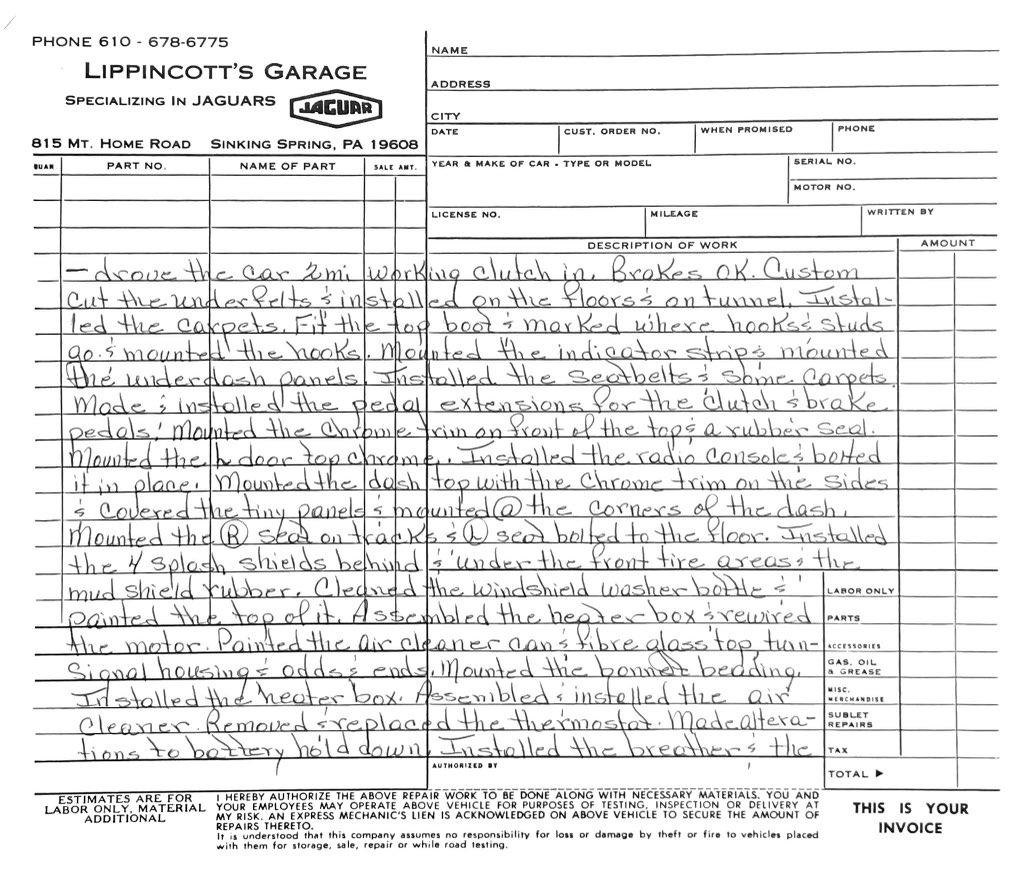 PHONE 610 - 678-6775
LIPPINCOTT'S GARAGE
SPECIALIZING IN JAGUARS JAGUAR
815 MT. HOME ROAD SINKING SPRING, PA 19608
NAME
ADDRESS
CITY
DATE CUST. ORDER NO. WHEN PROMISED PHONE
QUAN PART NO. NAME OF PART SALE AMT.
YEAR & MAKE OF CAR - TYPE OR MODEL SERIAL NO.
MOTOR NO.
LICENSE NO. MILEAGE WRITTEN BY
DESCRIPTION OF WORK AMOUNT
- drove the car 2mi working clutch in. Brakes OK. Custom
cut the underfelts & installed on the floors & on tunnel. Instal-
led the carpets. Fit the top boot & marked where hooks & studs
go & mounted the hooks. Mounted the indicator strip & mounted
the underdash panels. Installed the seatbelts & some carpets.
Made & installed the pedal extensions for the clutch & brake
pedals. Mounted the chrome trim on front of the top & a rubber seal.
Mounted the door top chrome. Installed the radio console & bolted
it in place. Mounted the dash top with the chrome trim on the sides
& covered the tiny panels & mounted @ the corners of the dash.
Mounted the (R) seat on tracks & (L) seat bolted to the floor. Installed
the 4 splash shields behind & under the front tire areas & the
mud shield rubber. Cleaned the windshield washer bottle &
painted the top of it. Assembled the heater box & rewired
the motor. Painted the air cleaner can & fibre glass top, turn-
signal housing & odds & ends. Mounted the bonnet beading.
Installed the heater box. Assembled & installed the air
cleaner. Removed & replaced the thermostat. Made altera-
tions to battery hold down. Installed the breather & the
LABOR ONLY
PARTS
ACCESSORIES
GAS, OIL & GREASE
MISC. MERCHANDISE
SUBLET REPAIRS
TAX
AUTHORIZED BY
TOTAL ▶
ESTIMATES ARE FOR
LABOR ONLY, MATERIAL
ADDITIONAL
I HEREBY AUTHORIZE THE ABOVE REPAIR WORK TO BE DONE ALONG WITH NECESSARY MATERIALS. YOU AND
YOUR EMPLOYEES MAY OPERATE ABOVE VEHICLE FOR PURPOSES OF TESTING, INSPECTION OR DELIVERY AT
MY RISK. AN EXPRESS MECHANIC'S LIEN IS ACKNOWLEDGED ON ABOVE VEHICLE TO SECURE THE AMOUNT OF
REPAIRS THERETO.
It is understood that this company assumes no responsibility for loss or damage by theft or fire to vehicles placed
with them for storage, sale, repair or while road testing.
THIS IS YOUR
INVOICE